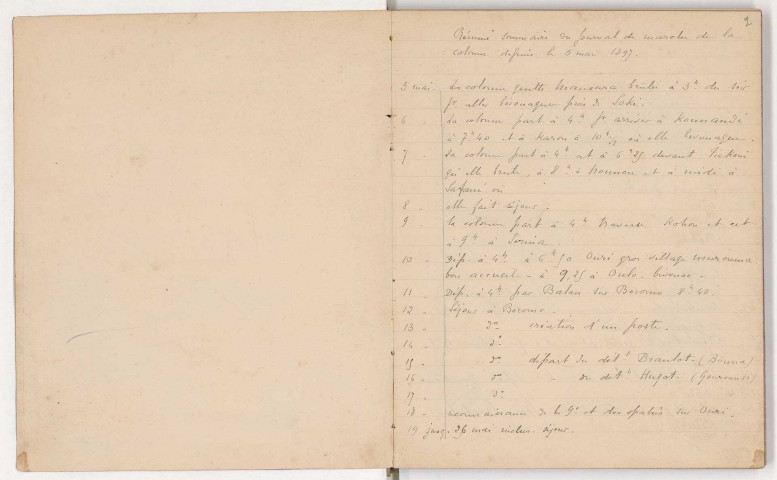 2
Résumé sommaire du Journal de marche de la
colonne depuis le 5 mai 1897.
5 mai. La colonne quitte Mansara brulé à 3h. du soir
pr. aller bivouaquer près de Soki.
6 - La colonne part à 4h pr arriver à Kounandé
à 7h.40 et à Karou à 10h 1/2 où elle bivouaque.
7 - La colonne part à 4h et à 6h25 devant
qu'elle brule, à 8h à Mounou et à midi à
Safané où
8 - elle fait séjour.
9 - la colonne part à 4h traverse Kohou et est
à 9h à Sonina.
10 - Dép. à 4h. à 6h50 Ouri gros village
bon accueil - à 9,25 à Oulo. bivouac.
11 - Dép. à 4h par Balan sur Boromo 8h40.
12 - Séjour à Boromo.
13 - do création d'un poste.
14 - do
15 - do départ du détt Braulot (Bouna)
16 - do - du détt Hugot (Gourounsi)
17 - do
18 - reconnaissance de la 9e et des spahis sur Ouri.
19 jusq. 26 mai inclus séjour.